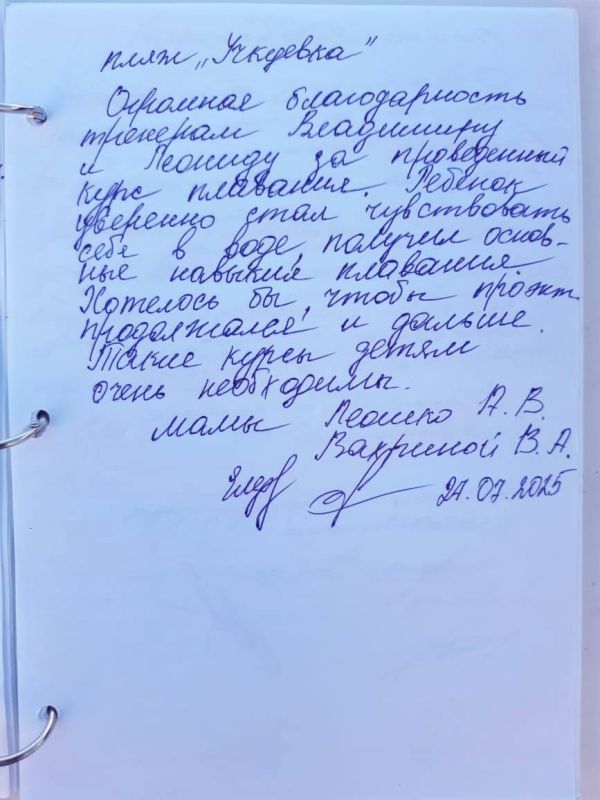 пляж „Учкуевка"
Огромная благодарность
тренерам Владимиру
и Леониду за проведенный
курс плавания. Ребенок
уверенно стал чувствовать
себе в воде, получил основ-
ные навыкия плавания.
Хотелось бы, чтобы проэкт
продолжался и дальше.
Такие курсы детям
очень необходимы.
мамы Леошко А. В.
Вахриной В. А.
27.07.2025